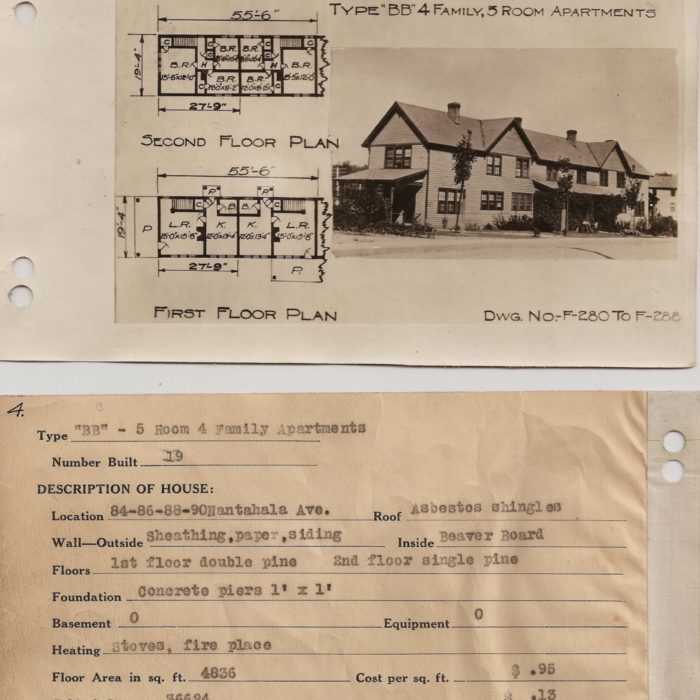 TYPE "BB" 4 FAMILY, 5 ROOM APARTMENTS
55'-6"
19'-4"
C C C C
B.R. B.R. B.R. B.R.
H H
15'-5"x12'-0" B.R. B.R. 15'-5"x12'-0"
C C
27'-9"
SECOND FLOOR PLAN
55'-6"
P P
19'-4"
P C B B C
L.R. K. K. L.R.
15'-0"x15'-8" 12'-0"x13'-4" 12'-0"x13'-4" 15'-0"x15'-8"
27'-9" P.
FIRST FLOOR PLAN
DWG. NO.-F-280 TO F-288
4.
Type "BB" - 5 Room 4 Family Apartments
Number Built 19
DESCRIPTION OF HOUSE:
Location 84-86-88-90Nantahala Ave. Roof Asbestos shingles
Wall—Outside Sheathing,paper,siding Inside Beaver Board
Floors 1st floor double pine 2nd floor single pine
Foundation Concrete piers 1' x 1'
Basement 0 Equipment 0
Heating Stoves, fire place
Floor Area in sq. ft. 4836 Cost per sq. ft. $ .95
36624 $ .13